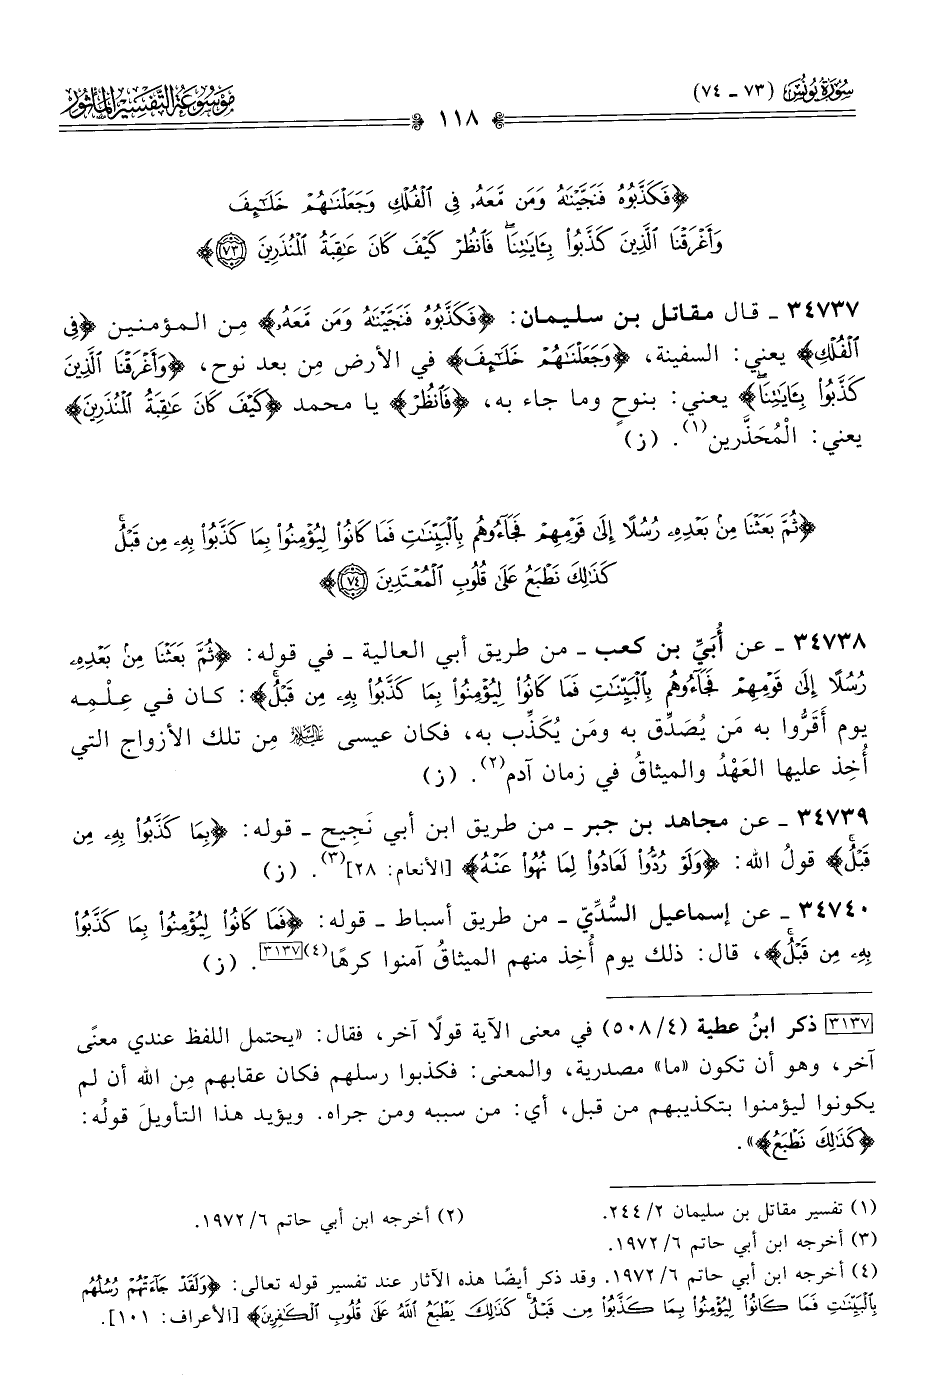 سورة يونس (٧٣ - ٧٤)
١١٨
موسوعة التفسير المأثور
﴿فَكَذَّبُوهُ فَنَجَّيْنَٰهُ وَمَن مَّعَهُۥ فِى ٱلْفُلْكِ وَجَعَلْنَٰهُمْ خَلَٰٓئِفَ
وَأَغْرَقْنَا ٱلَّذِينَ كَذَّبُوا۟ بِـَٔايَٰتِنَا ۖ فَٱنظُرْ كَيْفَ كَانَ عَٰقِبَةُ ٱلْمُنذَرِينَ ﴿٧٣﴾﴾
٣٤٧٣٧ - قال مقاتل بن سليمان: ﴿فَكَذَّبُوهُ فَنَجَّيْنَٰهُ وَمَن مَّعَهُۥ﴾ مِن المؤمنين ﴿فِى
ٱلْفُلْكِ﴾ يعني: السفينة، ﴿وَجَعَلْنَٰهُمْ خَلَٰٓئِفَ﴾ في الأرض مِن بعد نوح، ﴿وَأَغْرَقْنَا ٱلَّذِينَ
كَذَّبُوا۟ بِـَٔايَٰتِنَا ۖ﴾ يعني: بنوحٍ وما جاء به، ﴿فَٱنظُرْ﴾ يا محمد ﴿كَيْفَ كَانَ عَٰقِبَةُ ٱلْمُنذَرِينَ﴾
يعني: الْمُحَذَّرين(١). (ز)
﴿ثُمَّ بَعَثْنَا مِنۢ بَعْدِهِۦ رُسُلًا إِلَىٰ قَوْمِهِمْ فَجَآءُوهُم بِٱلْبَيِّنَٰتِ فَمَا كَانُوا۟ لِيُؤْمِنُوا۟ بِمَا كَذَّبُوا۟ بِهِۦ مِن قَبْلُ ۚ
كَذَٰلِكَ نَطْبَعُ عَلَىٰ قُلُوبِ ٱلْمُعْتَدِينَ ﴿٧٤﴾﴾
٣٤٧٣٨ - عن أُبَيّ بن كعب - من طريق أبي العالية - في قوله: ﴿ثُمَّ بَعَثْنَا مِنۢ بَعْدِهِۦ
رُسُلًا إِلَىٰ قَوْمِهِمْ فَجَآءُوهُم بِٱلْبَيِّنَٰتِ فَمَا كَانُوا۟ لِيُؤْمِنُوا۟ بِمَا كَذَّبُوا۟ بِهِۦ مِن قَبْلُ ۚ﴾: كان في عِلْمِه
يوم أَقَرُّوا به مَن يُصَدِّق به ومَن يُكَذِّب به، فكان عيسى عليه السلام مِن تلك الأزواج التي
أُخِذ عليها العَهْدُ والميثاقُ في زمان آدم(٢). (ز)
٣٤٧٣٩ - عن مجاهد بن جبر - من طريق ابن أبي نَجِيح - قوله: ﴿بِمَا كَذَّبُوا۟ بِهِۦ مِن
قَبْلُ ۚ﴾ قولُ الله: ﴿وَلَوْ رُدُّوا۟ لَعَادُوا۟ لِمَا نُهُوا۟ عَنْهُ﴾ [الأنعام: ٢٨](٣). (ز)
٣٤٧٤٠ - عن إسماعيل السُّدِّيّ - من طريق أسباط - قوله: ﴿فَمَا كَانُوا۟ لِيُؤْمِنُوا۟ بِمَا كَذَّبُوا۟
بِهِۦ مِن قَبْلُ ۚ﴾، قال: ذلك يوم أُخِذ منهم الميثاقُ آمنوا كرهًا(٤)[٣١٣٧]. (ز)
[٣١٣٧] ذكر ابنُ عطية (٤/٥٠٨) في معنى الآية قولًا آخر، فقال: «يحتمل اللفظ عندي معنًى
آخر، وهو أن تكون «ما» مصدرية، والمعنى: فكذبوا رسلهم فكان عقابهم مِن الله أن لم
يكونوا ليؤمنوا بتكذيبهم من قبل، أي: من سببه ومن جراه. ويؤيد هذا التأويلَ قولُه:
﴿كَذَٰلِكَ نَطْبَعُ﴾».
(١) تفسير مقاتل بن سليمان ٢/٢٤٤.
(٢) أخرجه ابن أبي حاتم ٦/١٩٧٢.
(٣) أخرجه ابن أبي حاتم ٦/١٩٧٢.
(٤) أخرجه ابن أبي حاتم ٦/١٩٧٢. وقد ذكر أيضًا هذه الآثار عند تفسير قوله تعالى: ﴿وَلَقَدْ جَآءَتْهُمْ رُسُلُهُم
بِٱلْبَيِّنَٰتِ فَمَا كَانُوا۟ لِيُؤْمِنُوا۟ بِمَا كَذَّبُوا۟ مِن قَبْلُ ۚ كَذَٰلِكَ يَطْبَعُ ٱللَّهُ عَلَىٰ قُلُوبِ ٱلْكَٰفِرِينَ﴾ [الأعراف: ١٠١].